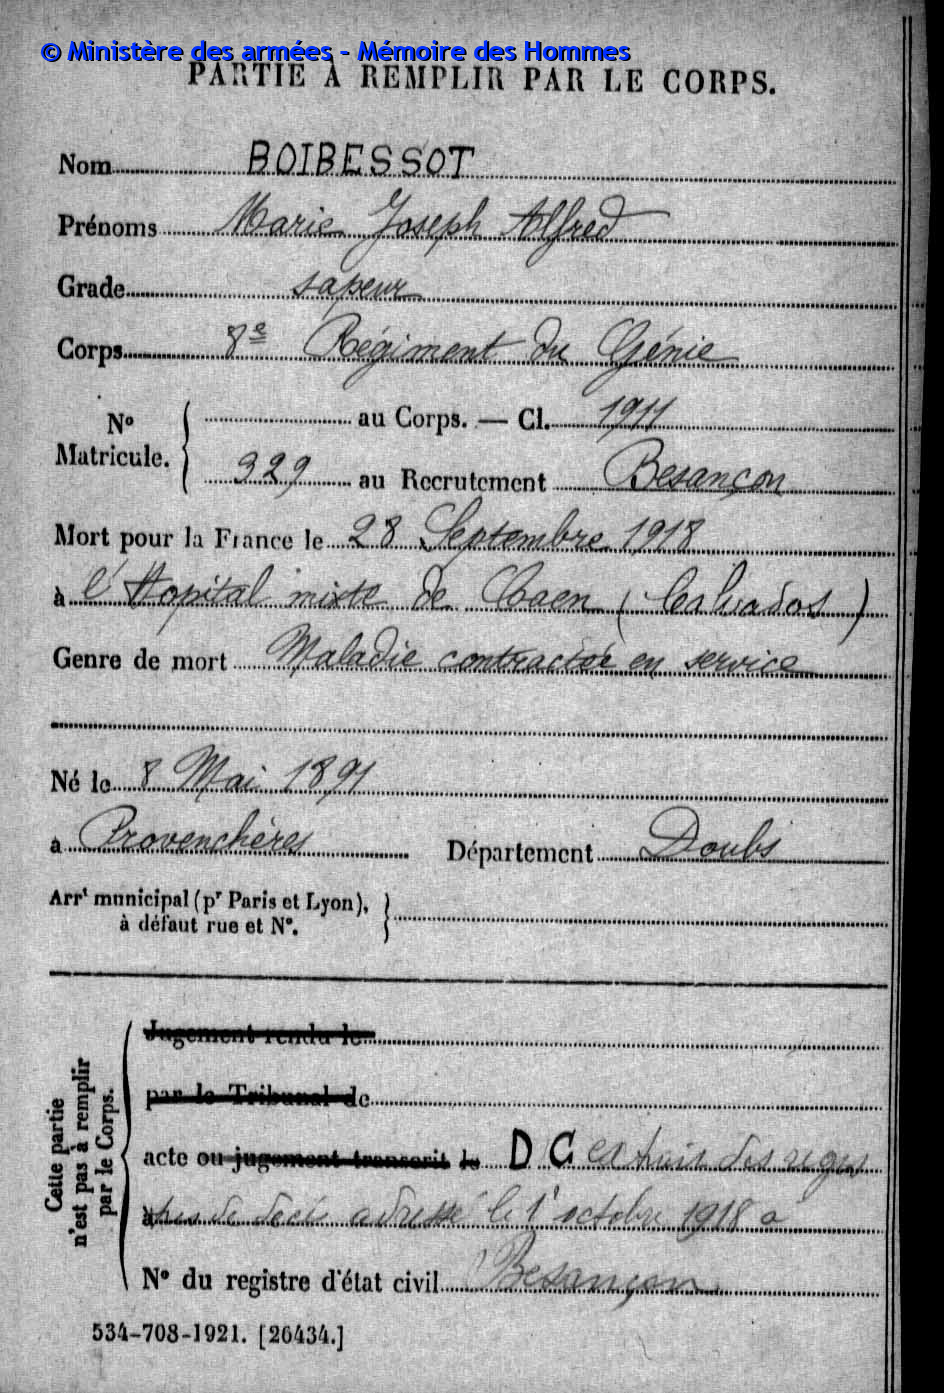 © Ministère des armées - Mémoire des Hommes
PARTIE À REMPLIR PAR LE CORPS.
Nom BOIBESSOT
Prénoms Marie Joseph Alfred
Grade sapeur
Corps 8e Régiment du Génie
No Matricule. au Corps. — Cl. 1911
929 au Recrutement Besançon
Mort pour la France le 28 Septembre 1918
à l'Hopital mixte de Caen (Calvados)
Genre de mort Maladie contractée en service
Né le 8 Mai 1891
à Provenchères Département Doubs
Arrt municipal (pr Paris et Lyon),
à défaut rue et No.
Cette partie
n'est pas à remplir
par le Corps.
Jugement rendu le
par le Tribunal de
acte ou jugement transcrit le D C extrait des regis
à tres de décès adressé le 1r octobre 1918 a
No du registre d'état civil Besançon
534-708-1921. [26434.]